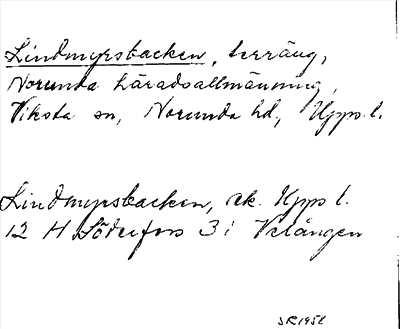 Lindmyrsbacken, terräng,
Norunda häradsallmänning,
Viksta sn, Norunda hd, Upps. l.
Lindmyrsbacken, ek. Upps l.
12 H Söderfors 3 i
SR 1956